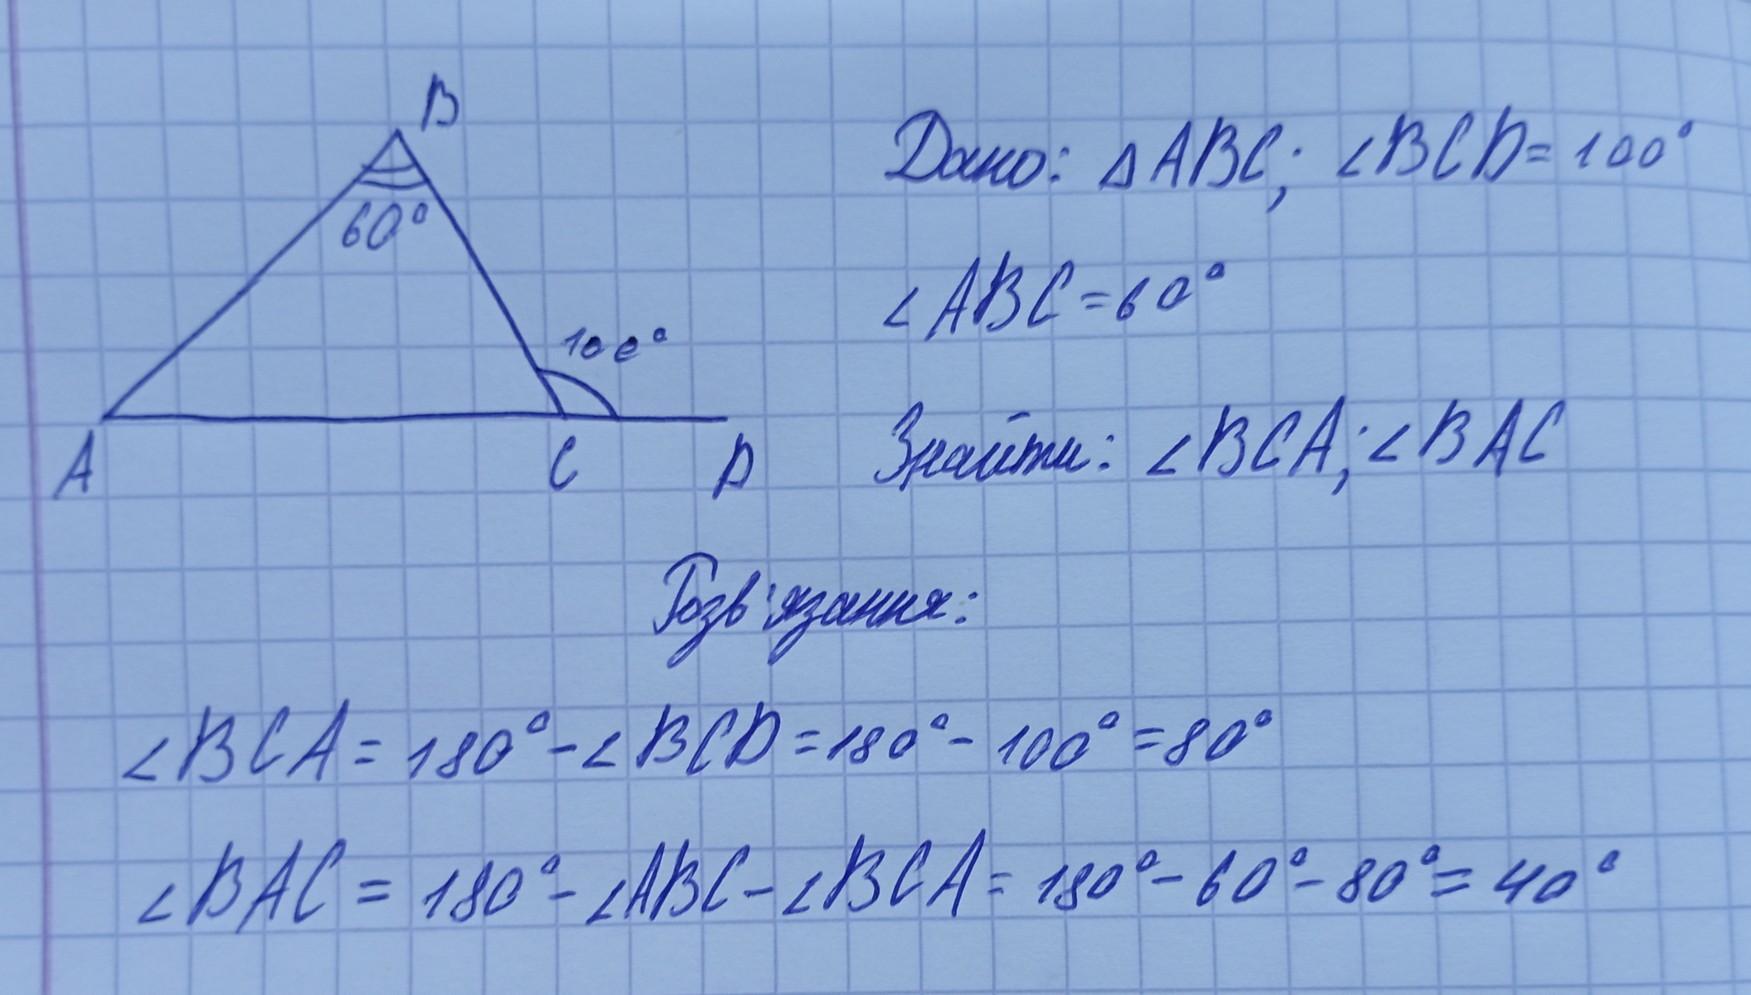 B
60°
100°
A
C
D
Дано: △ABC; ∠BCD = 100°
∠ABC = 60°
Знайти: ∠BCA; ∠BAC
Розв'язання:
∠BCA = 180° - ∠BCD = 180° - 100° = 80°
∠BAC = 180° - ∠ABC - ∠BCA = 180° - 60° - 80° = 40°